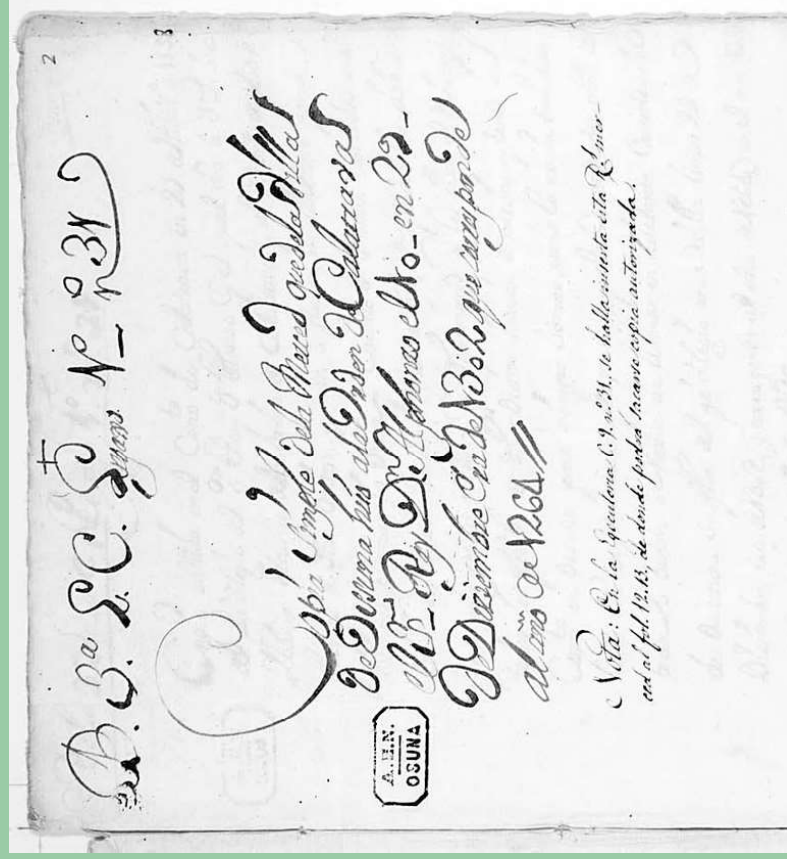 2
B. 3ª L. C. Nº 31
Copia Simple dela Merced que dela Villa
de Ossuna hiso ala Orden de Calatrava
el Sr. Rey Dn. Alphonso el 10_ en 29_
de Diziembre Era de 1302 que corresponde
al año de 1264 //
Nota: En la Egecutoria C. 9. nº 31. se halla inserta esta R.l mer-
ced al fol. 12. 13. de donde podrá sacarse copia autorizada.
A.H.N.
OSUNA